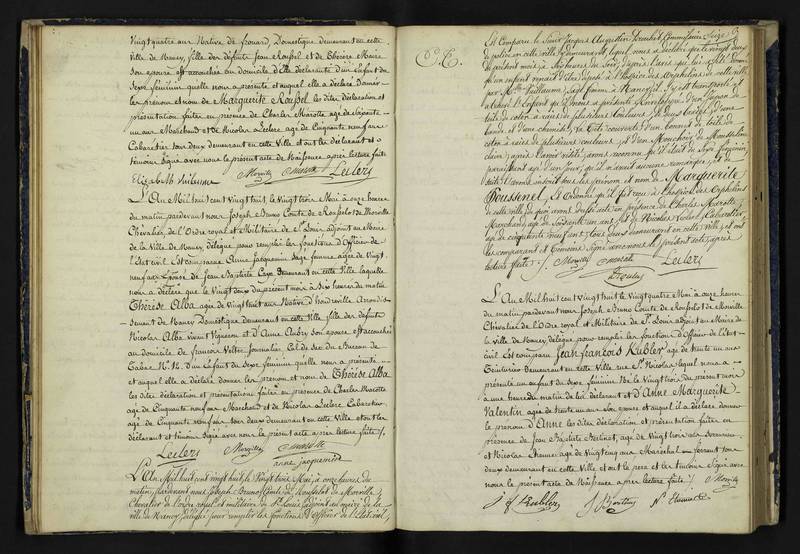 Vingt quatre ans Native de frouard, Domestique demeurant en cette
ville de Nancy, fille des defunts Jean Roussel et de Thérèse Maire
Son épouse, est accouchée au domicile d'Elle déclarante d'un Enfant du
Sexe féminin qu'elle nous a présenté et auquel elle a déclaré donner
les prénom et nom de Marguerite Roussel, les dites déclaration et
présentation faites en presence de Charles Marotte agé de Soixante
un ans Marchand et de Nicolas Leclerc agé de Cinquante neuf ans
Cabaretier tous deux demeurant en cette Ville et ont les déclarant et
témoins Signé avec nous le présent acte de Naissance après lecture faite
Elizab. M. Vuillaume Morville Marotte Leclerc
L'An Mil huit cent Vingt huit, le Vingt trois Mai à onze heures
du matin, pardevant nous Joseph Bruno Comte de Rousselot de Morville
Chevalier, de l'Ordre royal et Militaire de St Louis adjoint au Maire
de la Ville de Nancy délégué pour remplir les fonctions d'Officier de
l'Etat civil Est comparue Anne Jacquemin Sage femme agée de Vingt
neuf ans Epouse de Jean Baptiste demeurant en cette Ville laquelle
nous a déclaré que le Vingt deux du présent mois à Six heures du matin
Thérèse Alba agée de Vingt huit ans Native d'houdreville Arrondis-
sement de Nancy Domestique demeurant en cette Ville fille des defunts
Nicolas Alba vivant Vigneron et d'Anne Aubry Son épouse est accouchée
au domicile de francois Journalier, Cul de Sac du Bureau de
Tabac No. 12. d'un Enfant du Sexe féminin qu'elle nous a présenté
et auquel elle a déclaré donner les prénom et nom de Thérèse Alba
les dites déclaration et présentation faites en presence de Charles Marotte
agé de Cinquante neuf ans Marchand et de Nicolas Leclerc Cabaretier
agé de Cinquante neuf ans tous deux demeurant en cette Ville et ont les
déclarant et témoins Signé avec nous le présent acte après lecture faite /.
Leclerc Morville Marotte
anne jacquemin
L'An Mil huit cent vingt huit, le Vingt trois Mai, à onze heures du
matin, pardevant nous Joseph Bruno Comte de Rousselot de Morville
Chevalier de l'ordre royal et militaire de St Louis adjoint au maire de la
ville de Nancy, délégué pour remplir les fonctions d'officier de l'état civil,
Est Comparu le Sieur Jacques Augustin Commissaire
de police en cette ville y demeurant, lequel nous a déclaré que le vingt deux
du présent mois, à heures du Soir, d'après l'avis qui lui a été donné
qu'un enfant venait d'être déposé à l'hospice des Orphelins de cette ville
par Mme Vuillaume Sage femme à Nancy, il s'y est transporté et
a trouvé l'Enfant qu'il nous a présenté
toile de coton à raies de plusieurs couleurs, de deux d'une
bande et d'une chemise, la tête couverte d'un bonnet de toile de
coton à raies de plusieurs couleurs, et d'un Mouchoir de Mousseline
claire; après l'avoir visité, avons reconnu qu'il était du Sexe féminin,
paraissant agé d'un jour, qu'il n'avait aucune remarque; de
suite l'avons inscrit sous les prénom et nom de Marguerite
Poussenel, et Ordonné qu'il fut reçu à l'hospice des Orphelins
de cette ville, de quoi avons dressé acte en présence de Charles Marotte
Marchand agé de Soixante un ans, et de Nicolas Leclerc Cabaretier
agé de cinquante neuf ans, tous deux demeurant en cette Ville, et ont
les comparant et témoins Signé avec nous le présent acte, après
lecture faite /. Morville Marotte Leclerc
L'An Mil huit cent Vingt huit le Vingt quatre Mai à onze heures
du matin pardevant nous Joseph Bruno Comte de Rousselot de Morville
Chevalier de l'Ordre royal et Militaire de St Louis adjoint au Maire de
la Ville de Nancy délégué pour remplir les fonctions d'Officier de l'Etat
civil Est comparu Jean François Kubler agé de trente un ans
Teinturier demeurant en cette Ville rue St Nicolas lequel nous a
présenté un Enfant du Sexe féminin Né le Vingt trois du présent mois
à une heure du matin de lui déclarant et D'Anne Marguerite
Valentin agée de trente un ans Son épouse et auquel il a déclaré donner
le prénom d'Anne les dites déclaration et présentation faites en
présence de Jean Baptiste agé de Vingt trois ans
et Nicolas agé de Vingt cinq ans Maréchal ferrant tous
deux demeurant en cette Ville et ont le pere et les témoins Signé avec
nous le présent acte de Naissance après lecture faite /. Morville
J f Kubler